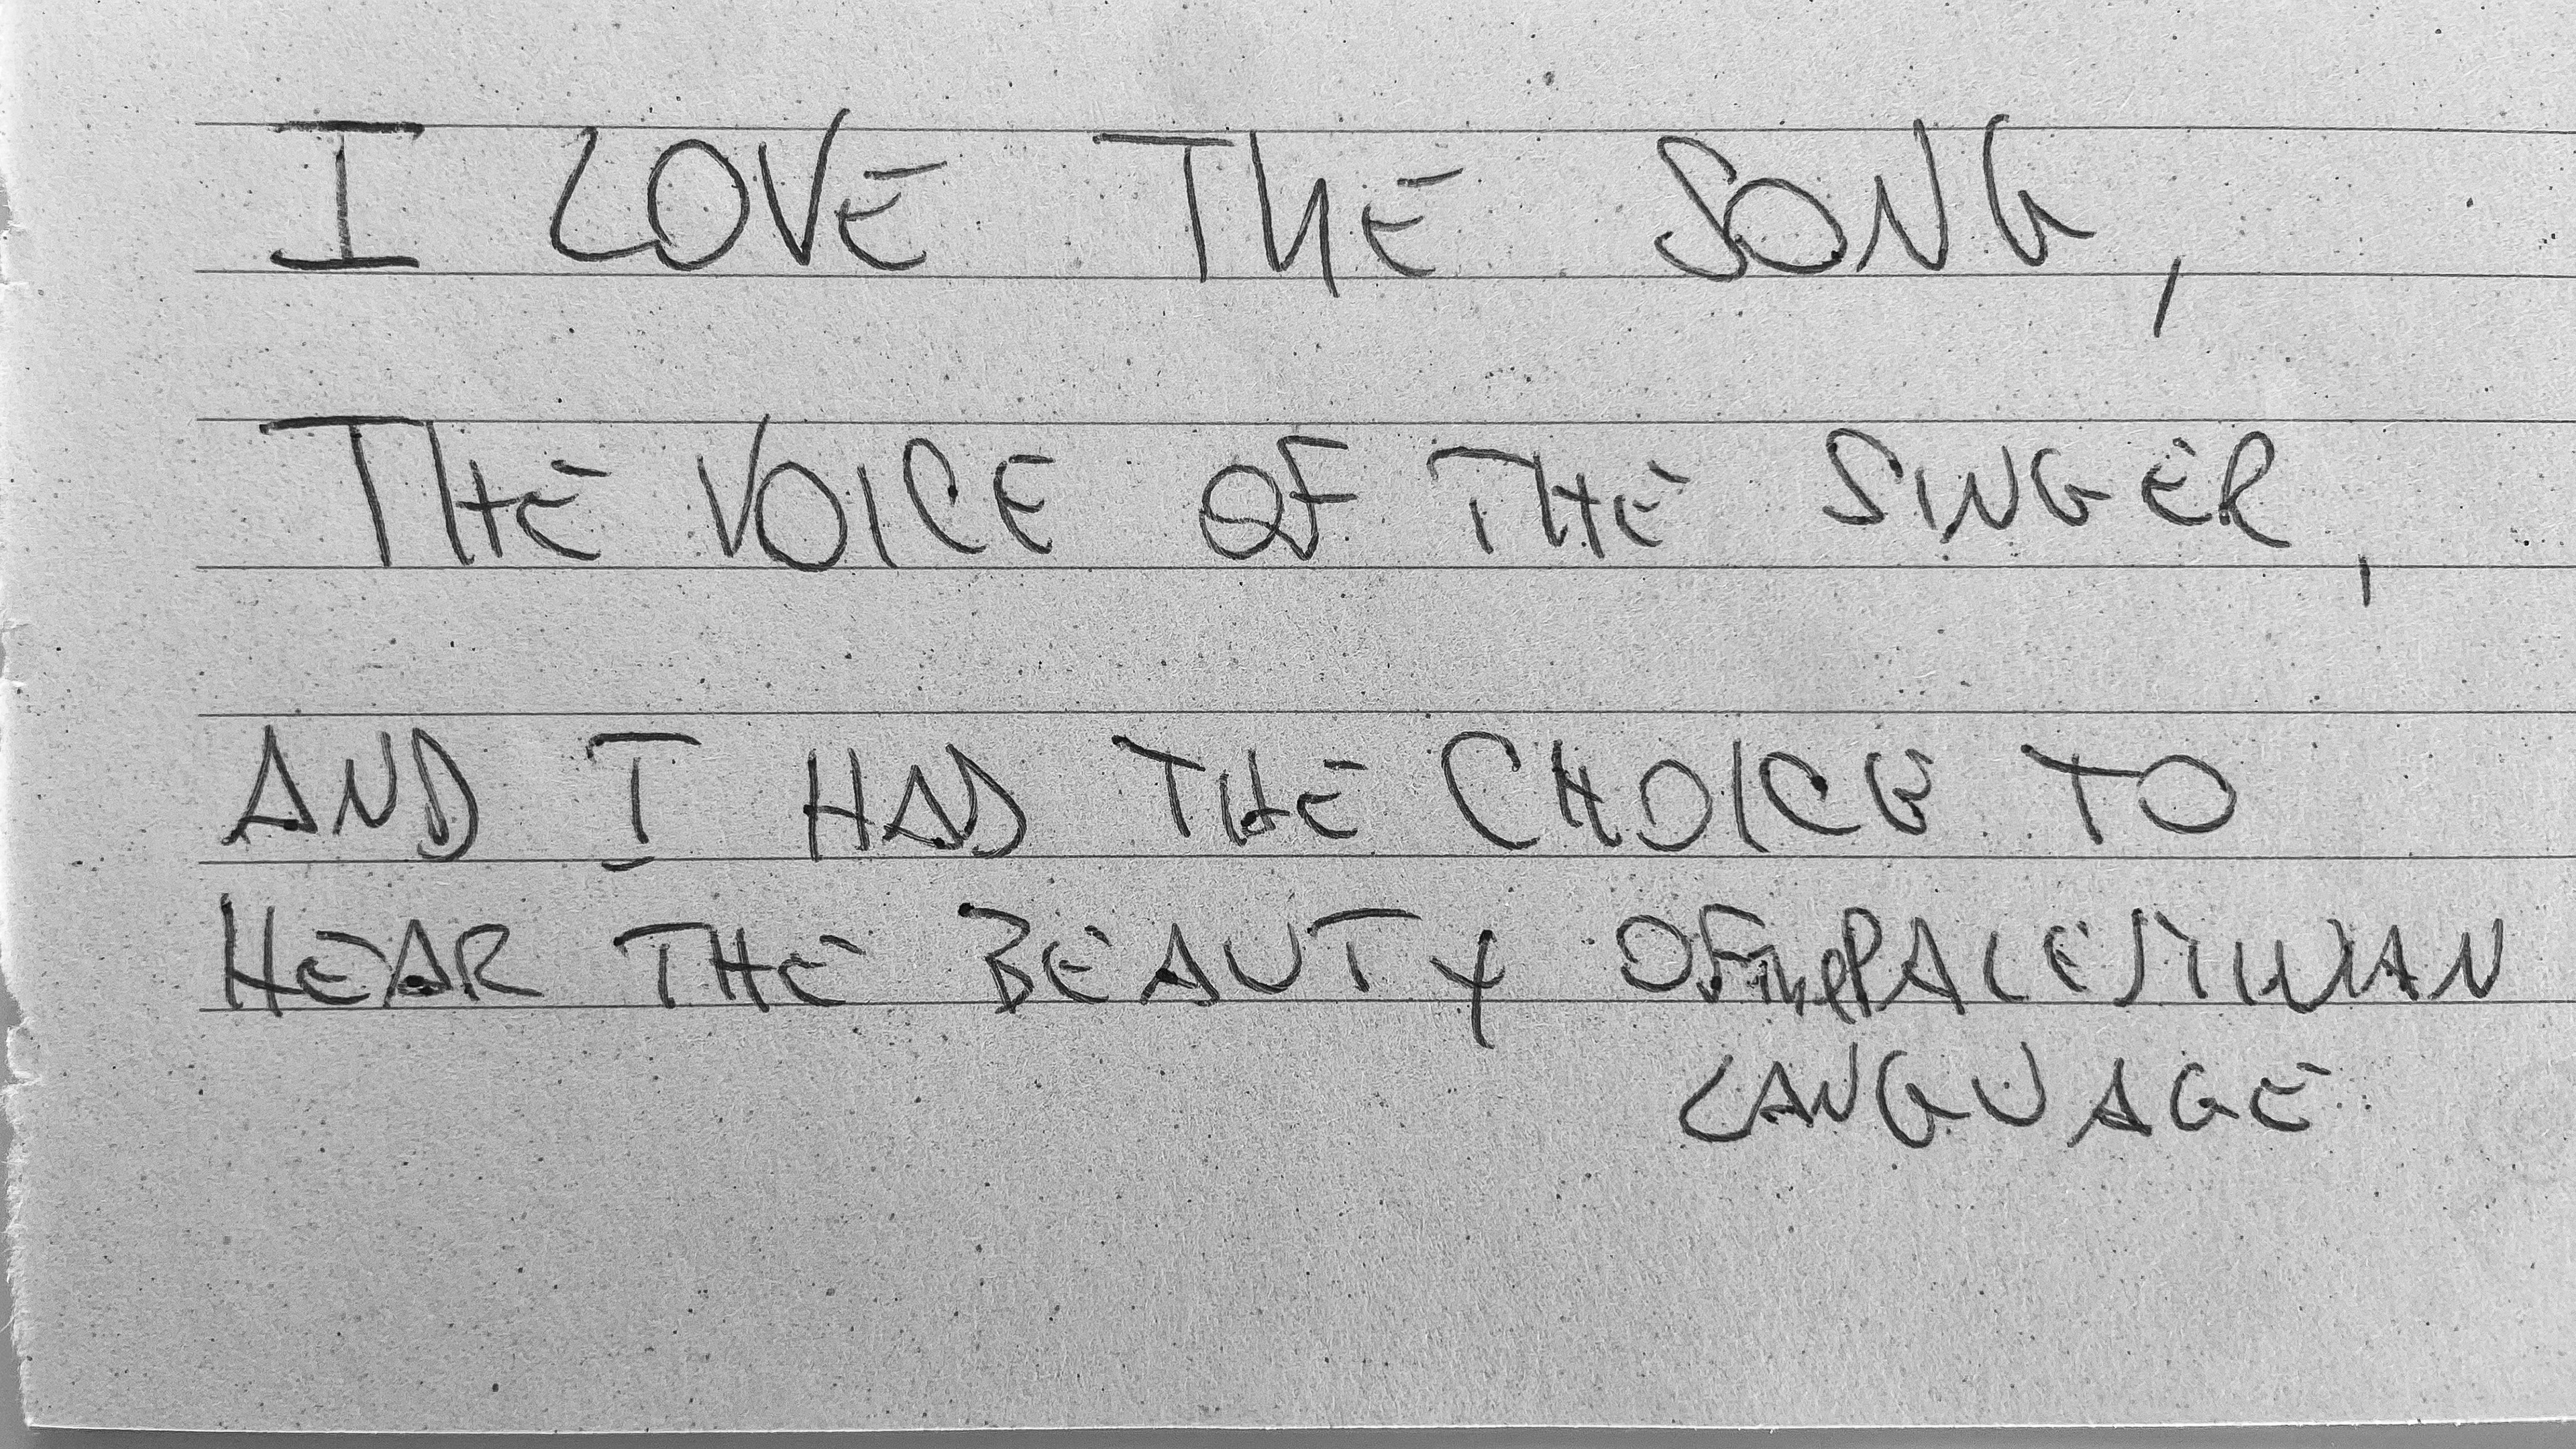 I LOVE THE SONG,
THE VOICE OF THE SINGER,
AND I HAD THE CHOICE TO
HEAR THE BEAUTY OF the PALESTINIAN
LANGUAGE